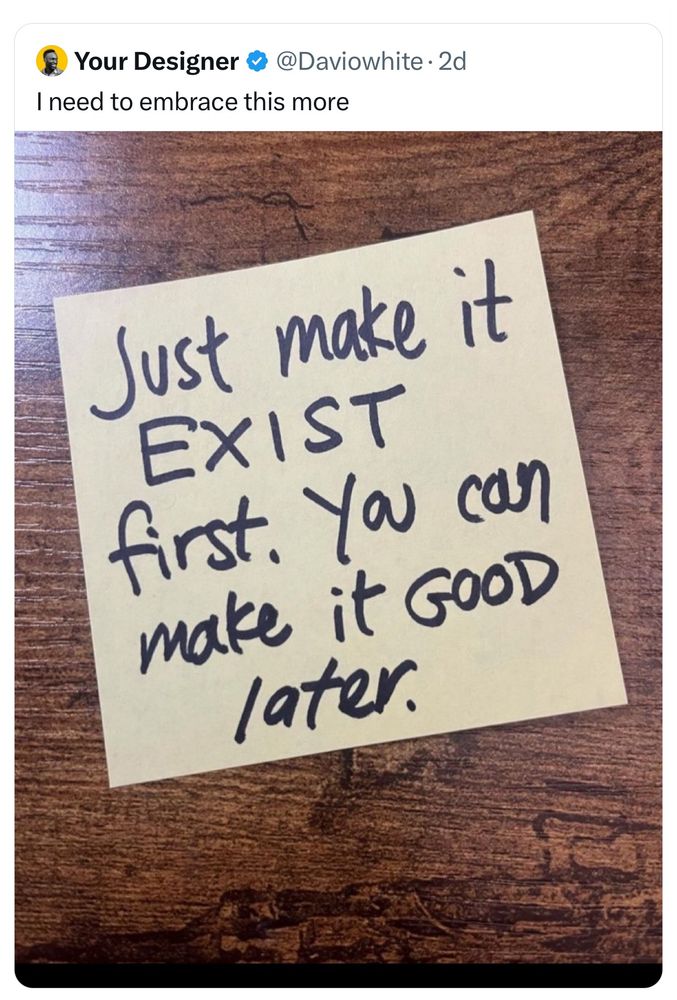 Your Designer @Daviowhite · 2d
I need to embrace this more
Just make it
EXIST
first. You can
make it GOOD
later.